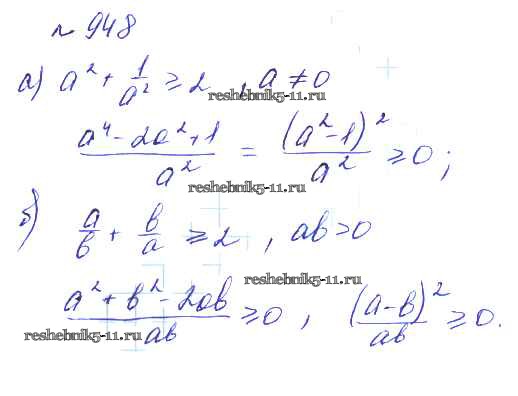 № 948
а) a² + 1/a² ≥ 2, a ≠ 0
reshebnik5-11.ru
(a⁴ - 2a² + 1)/a² = (a² - 1)²/a² ≥ 0;
reshebnik5-11.ru
б) a/b + b/a ≥ 2, ab > 0
reshebnik5-11.ru
(a² + b² - 2ab)/ab ≥ 0, (a - b)²/ab ≥ 0.
reshebnik5-11.ru
reshebnik5-11.ru